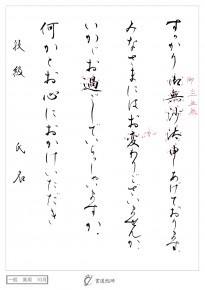 すっかり御無沙汰申しあげております。
みなさまにはお変わりございませんか。
いかがお過ごしでいらっしゃいますか。
何かとお心におかけいただき
段級 氏名
一般 実用 10月